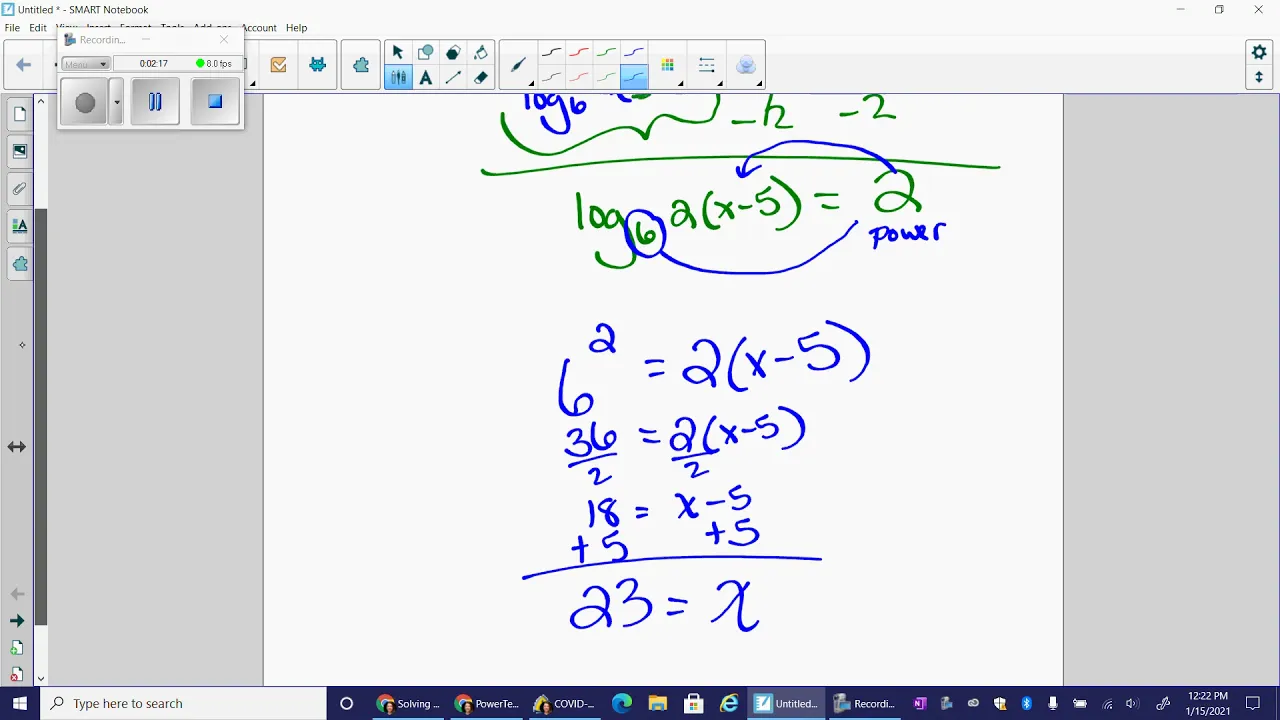 Untitled * - SMART Notebook
File Edit View Insert Format Tools Add-ons Account Help
Recordin...
Menu 0:02:17 8.0 fps
A
log6
-2 -2
log6 2(x-5) = 2
power
6^2 = 2(x-5)
36 = 2(x-5)
2 2
18 = x-5
+5 +5
23 = x
Type here to search
Solving ... PowerTe... COVID-... Untitled... Recordin...
12:22 PM
1/15/2021